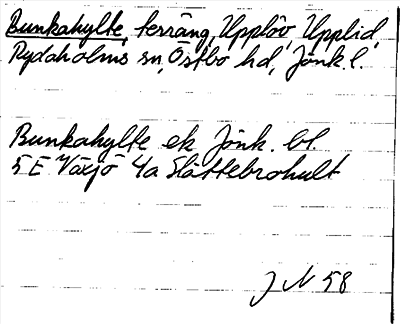 Bunkahylte, terräng, Upplöv, Upplid,
Rydaholms sn, Östbo hd, Jönk. l.
Bunkahylte ek Jönk. bl.
5 E Växjö 4a Slättebrohult
J N 58